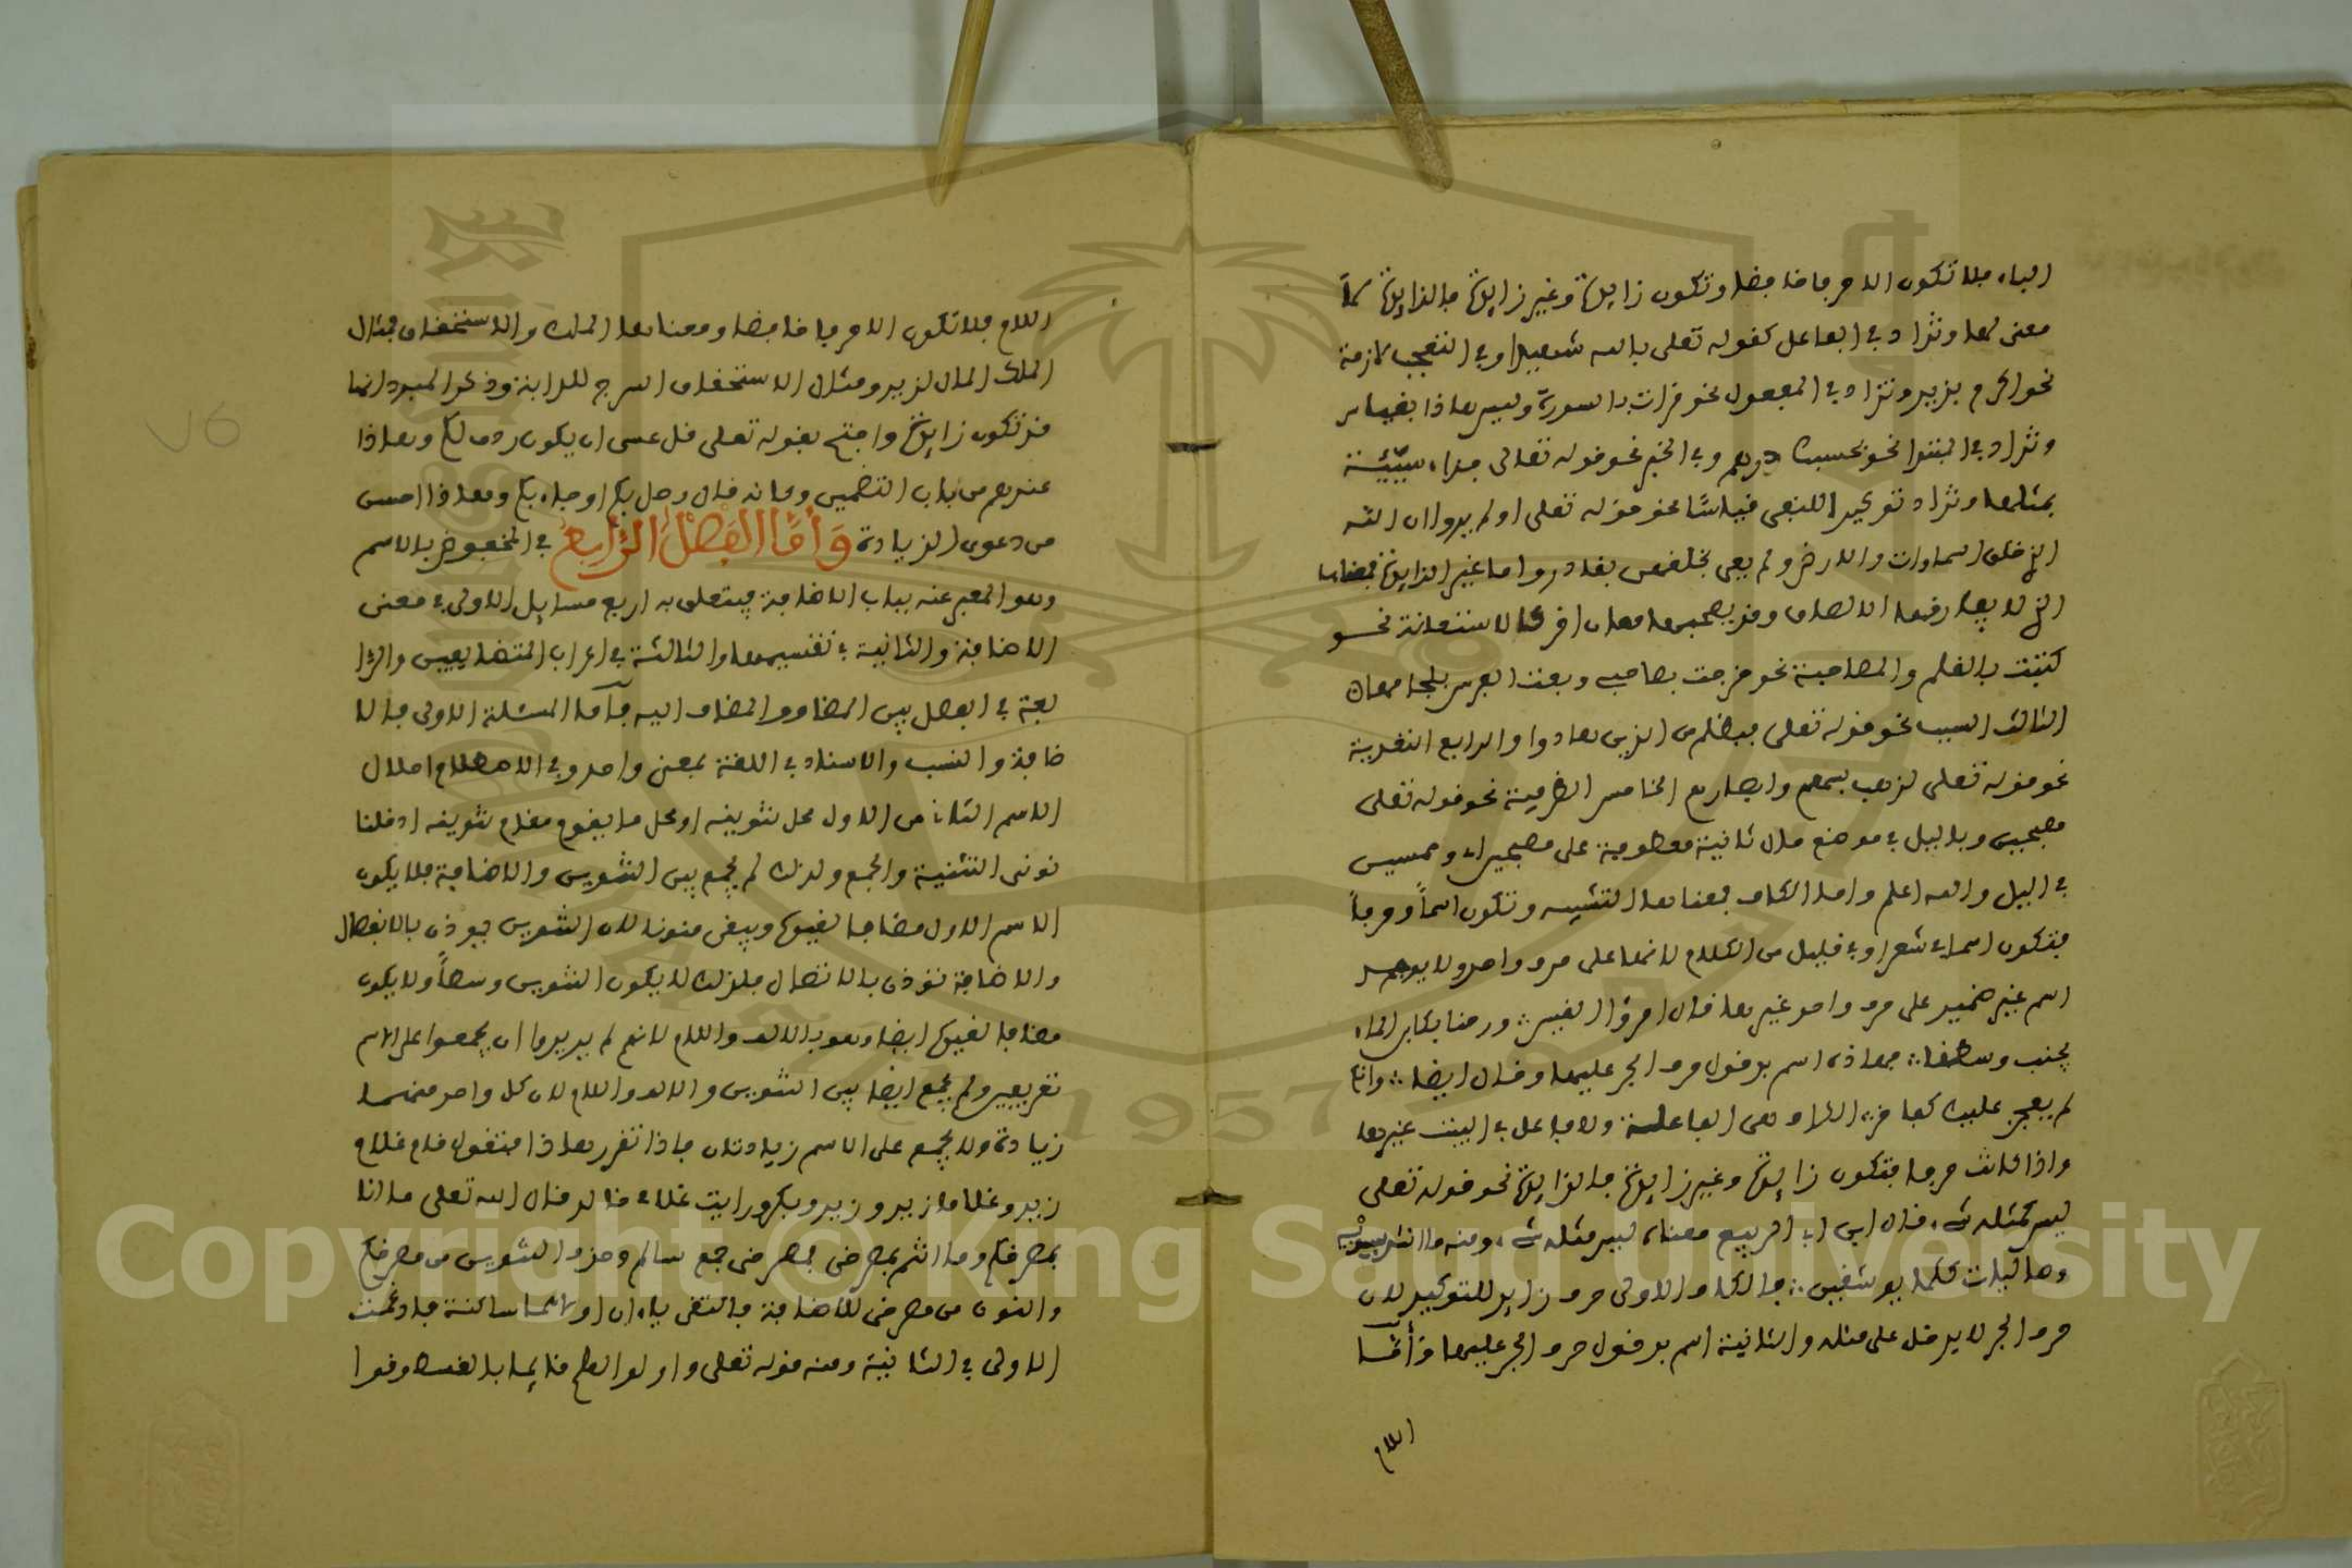 الباء فلا تكون الا حرفا خافضا وتكون زايدة وغير زايدة فالزايدة لا
معنى لها وتزاد في الفاعل كقوله تعلى بالله شهيدا وفي التعجب لازمة
نحو اكرم بزيد وتزاد في المفعول نحو قرات بالسورة وليس هاذا بقياس
وتزاد في المبتدا نحو بحسبك درهم وفي الخبر نحو قوله تعالى جزاء سيئة
بمثلها وتزاد توكيدا للنفي قياسا نحو قوله تعلى اولم يروا ان الله
الذي خلق السماوات والارض ولم يعي بخلقهن بقادر واما غير الزايدة فمعناها
الذي لا يفارقها الالصاق وقد يصحبها معان اخر كالاستعانة نحو
كتبت بالقلم والمصاحبة نحو خرجت بصاحبي وبعت الفرس بلجامها
الثالث السبب نحو قوله تعلى فبظلم من الذين هادوا والرابع التعدية
نحو قوله تعلى لذهب بسمعهم وابصارهم الخامس الظرفية نحو قوله تعلى
مصبحين وباليل في موضع حال ثانية معطوفة على مصبحين اي وممسين
في اليل والله اعلم واما الكاف فمعناها التشبيه وتكون اسما وحرفا
فتكون اسما في شعر او في قليل من الكلام لانها على حرف واحد ولا يوجد
اسم غير ضمير على حرف واحد غيرها قال امرؤ القيس ورحنا بكابن الماء
يجنب وسطنا فهاذه اسم بدخول حرف الجر عليها وقال ايضا وانك
لم يفخر عليك كفاخر الكاف هي الفاعلة ولا فاعل في البيت غيرها
واذا كانت حرفا فتكون زايدة وغير زايدة فالزايدة نحو قوله تعلى
ليس كمثله شيء قال ابن ابي الربيع معناه ليس مثله شيء ومنه ما انشد سيبويه
وصاليات ككما يوثفين فالكاف الاولى حرف زايد للتوكيد لان
حرف الجر لا يدخل على مثله والثانية اسم بدخول حرف الجر عليها وأما
اللام
اللام فلا تكون الا حرفا خافضا ومعناها الملك والاستحقاق فمثال
الملك المال لزيد ومثال الاستحقاق السرج للدابة وذكر المبرد انها
قد تكون زايدة واحتج بقوله تعلى قل عسى ان يكون ردف لكم وهاذا
عندهم من باب التضمين وكانه قال وصل بكم او جاء بكم وهاذا احسن
من دعوى الزيادة وَأَمَّا الفَصْلُ الرَّابِعُ في المخفوض بالاسم
وهو المعبر عنه بباب الاضافة فيتعلق به اربع مسايل الاولى في معنى
الاضافة والثانية في تقسيمها والثالثة في اعراب المتضايفين والرا
بعة في الفصل بين المضاف والمضاف اليه فأما المسئلة الاولى فالا
ضافة والنسب والاسناد في اللغة بمعنى واحد وفي الاصطلاح احلال
الاسم الثاني من الاول محل تنوينه او محل ما يقوم مقام تنوينه اذ قلنا
نونى التثنية والجمع ولذلك لم يجمع بين التنوين والاضافة فلا يكون
الاسم الاول مضافا لغيره ويبقى منونا لان التنوين يوذن بالانفصال
والاضافة توذن بالاتصال فلذلك لا يكون التنوين وسطا ولا يكون
مضافا لغيره ايضا وهو بالالف واللام لانهم لم يريدوا ان يجمعوا على الاسم
تعريفين ولم يجمع ايضا بين التنوين والالف واللام لان كل واحد منهما
زيادة ولا يجمع على الاسم زيادتان فاذا تقرر هاذا فتقول قام غلام
زيد وغلاما زيد وزيدو بكر ورايت غلامي خالد قال الله تعلى ما انا
بمصرخكم وما انتم بمصرخي فمصرخي جمع سالم وحذف التنوين من مصرخكم
والنون من مصرخي للاضافة فالتقى ياءان اولاهما ساكنة فادغمت
الاولى في الثانية ومنه قوله تعلى واولوا العلم قايما بالقسط وقوا
Copyright © King Saud University
1957